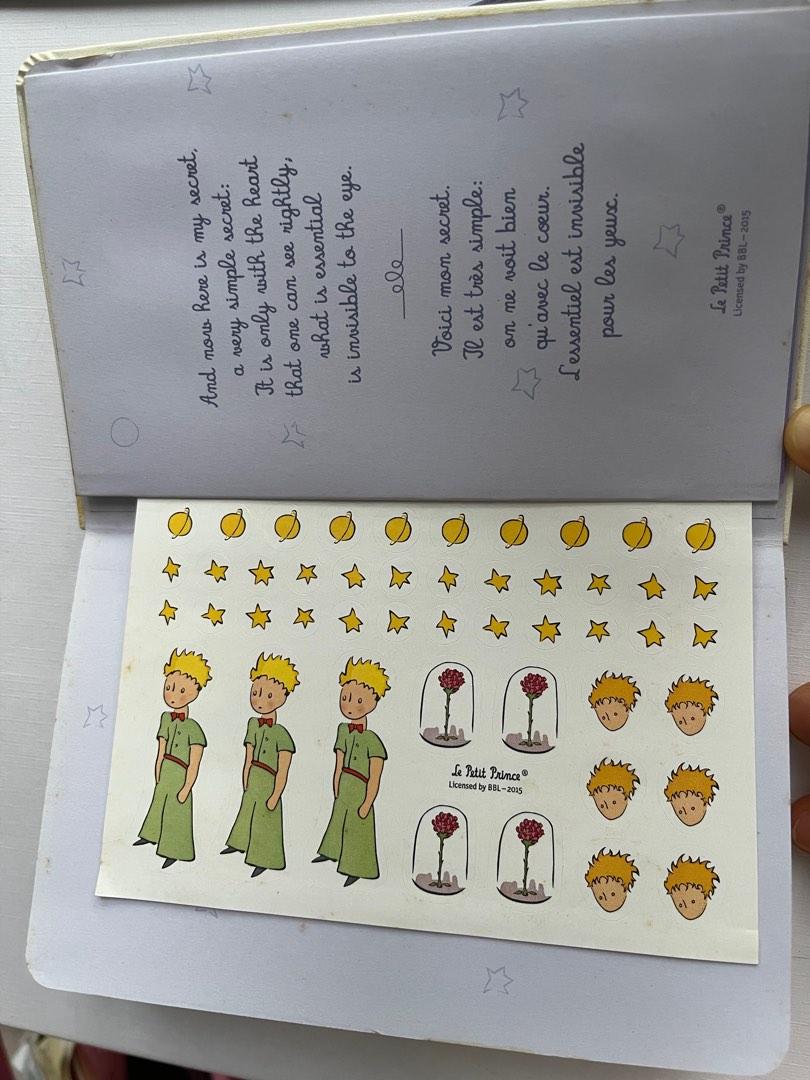 And now here is my secret,
a very simple secret:
It is only with the heart
that one can see rightly;
what is essential
is invisible to the eye.
Voici mon secret.
Il est très simple:
on ne voit bien
qu'avec le coeur.
L'essentiel est invisible
pour les yeux.
Le Petit Prince®
Licensed by BBL–2015
Le Petit Prince®
Licensed by BBL–2015